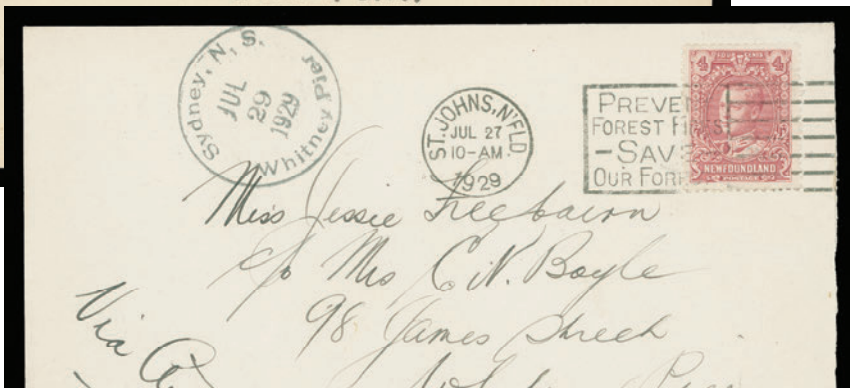 Sydney, N. S.
JUL
29
1929
Whitney Pier
ST. JOHNS, N'FLD
JUL 27
10-AM.
1929
PREVE
FOREST FI
-SAV
OUR FOR
4
4
NEWFOUNDLAND
POSTAGE
Miss Jessie Freebairn
c/o Mrs C. N. Boyle
98 James Street
Via
Pier